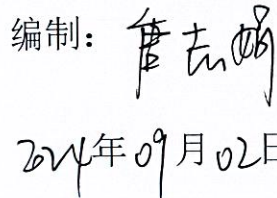 编制：唐志娟
2024年09月02日